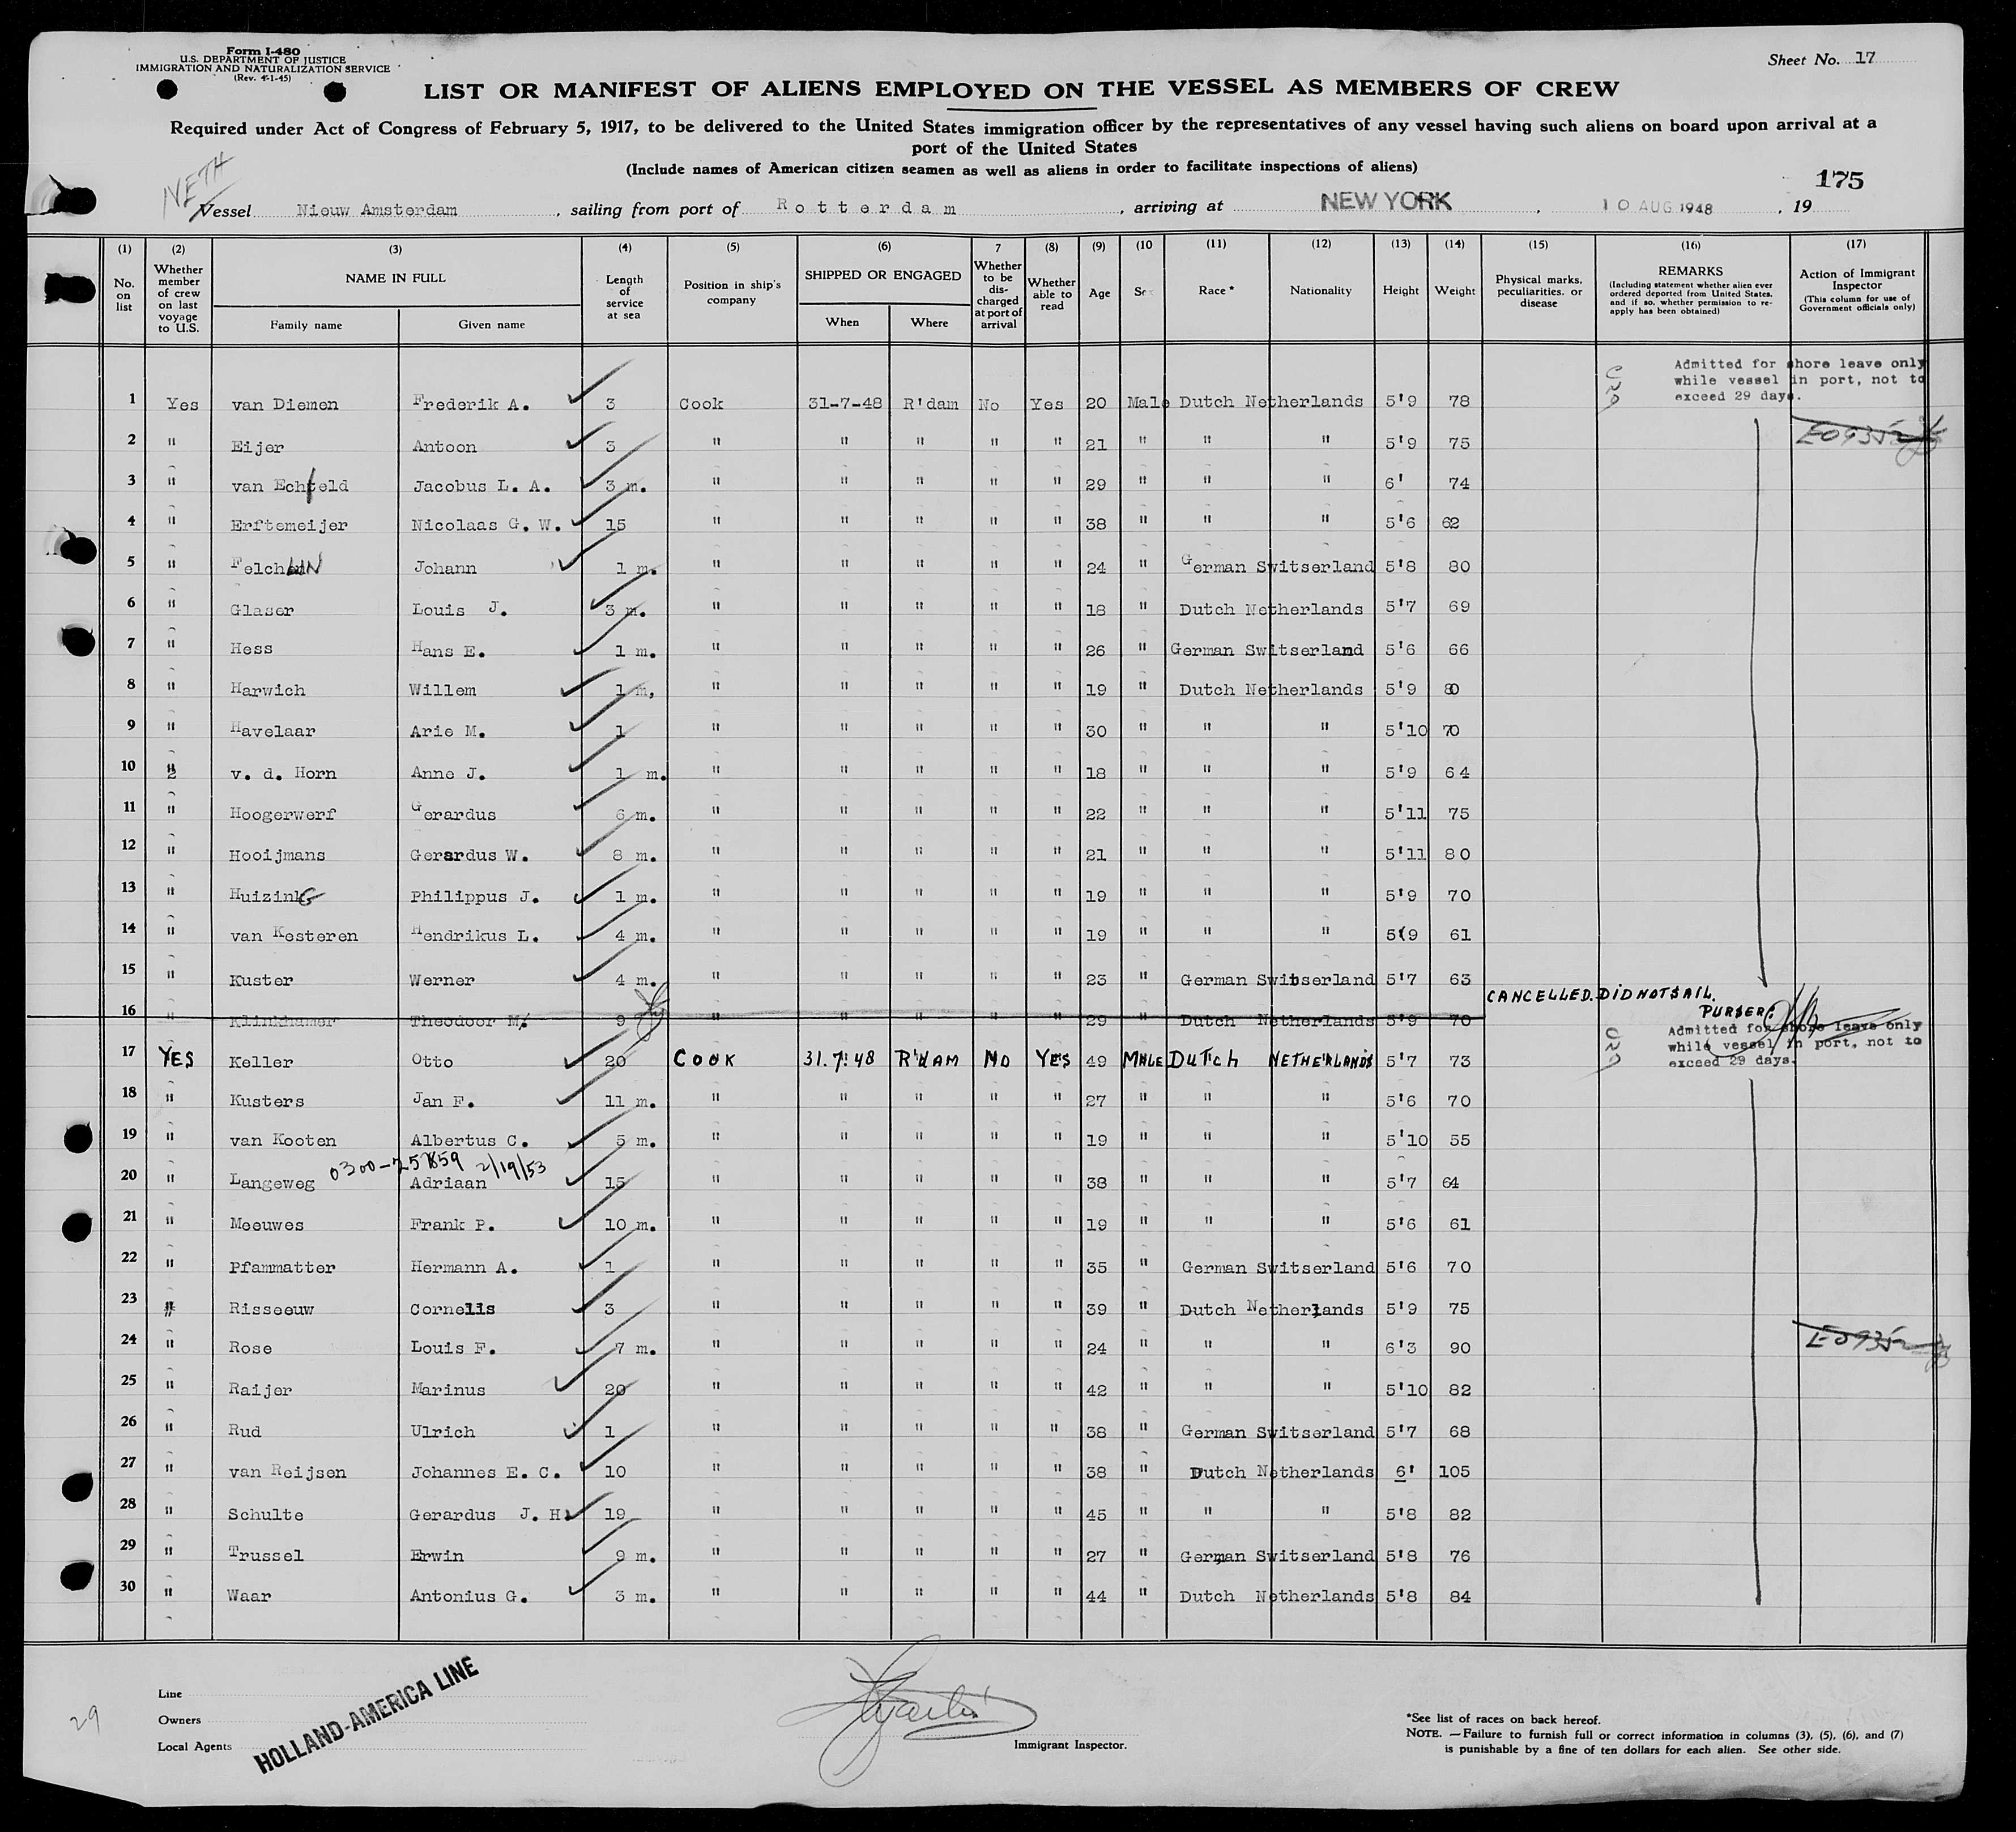 Form I-480
U.S. DEPARTMENT OF JUSTICE
IMMIGRATION AND NATURALIZATION SERVICE
(Rev. 4-1-45)
Sheet No. 17
LIST OR MANIFEST OF ALIENS EMPLOYED ON THE VESSEL AS MEMBERS OF CREW
Required under Act of Congress of February 5, 1917, to be delivered to the United States immigration officer by the representatives of any vessel having such aliens on board upon arrival at a
port of the United States
(Include names of American citizen seamen as well as aliens in order to facilitate inspections of aliens)
175
NETH
Vessel Nieuw Amsterdam, sailing from port of Rotterdam, arriving at NEW YORK, 10 AUG 1948, 19
(1) (2) (3) (4) (5) (6) 7 (8) (9) (10 (11) (12) (13) (14) (15) (16) (17)
No. on list
Whether member of crew on last voyage to U.S.
NAME IN FULL
Family name Given name
Length of service at sea
Position in ship's company
SHIPPED OR ENGAGED
When Where
Whether to be discharged at port of arrival
Whether able to read
Age
Race *
Nationality
Height
Weight
Physical marks, peculiarities, or disease
REMARKS
(Including statement whether alien ever ordered deported from United States, and if so, whether permission to reapply has been obtained)
Action of Immigrant Inspector
(This column for use of Government officials only)
Admitted for shore leave only
while vessel in port, not to
exceed 29 days.
1 Yes van Diemen Frederik A. 3 Cook 31-7-48 R'dam No Yes 20 Male Dutch Netherlands 5'9 78
2 " Eijer Antoon 3 " " " " " 21 " " " 5'9 75
3 " van Echteld Jacobus L. A. 3 m. " " " " " 29 " " " 6' 74
4 " Erftemeijer Nicolaas G. W. 15 " " " " " 38 " " " 5'6 62
5 " Felchlin Johann 1 m. " " " " " 24 " German Switserland 5'8 80
6 " Glaser Louis J. 3 m. " " " " " 18 " Dutch Netherlands 5'7 69
7 " Hess Hans E. 1 m. " " " " " 26 " German Switserland 5'6 66
8 " Harwich Willem 1 m, " " " " " 19 " Dutch Netherlands 5'9 80
9 " Havelaar Arie M. 1 " " " " " 30 " " " 5'10 70
10 " v. d. Horn Anne J. 1 m. " " " " " 18 " " " 5'9 64
11 " Hoogerwerf Gerardus 6 m. " " " " " 22 " " " 5'11 75
12 " Hooijmans Gerardus W. 8 m. " " " " " 21 " " " 5'11 80
13 " HuizinG Philippus J. 1 m. " " " " " 19 " " " 5'9 70
14 " van Kesteren Hendrikus L. 4 m. " " " " " 19 " " " 5(9 61
15 " Kuster Werner 4 m. " " " " " 23 " German Switserland 5'7 63
CANCELLED. DID NOT SAIL.
PURSER:
16 " Klinkhamer Theodoor M. 9 " " " " " 29 " Dutch Netherlands 5'9 70
Admitted for shore leave only
while vessel in port, not to
exceed 29 days.
17 YES Keller Otto 20 COOK 31.7.48 R'DAM NO YES 49 MALE DUTCH NETHERLANDS 5'7 73
18 " Kusters Jan F. 11 m. " " " " " 27 " " " 5'6 70
19 " van Kooten Albertus C. 5 m. " " " " " 19 " " " 5'10 55
2/19/53
20 " Langeweg Adriaan 15 " " " " " 38 " " " 5'7 64
21 " Meeuwes Frank P. 10 m. " " " " " 19 " " " 5'6 61
22 " Pfammatter Hermann A. 1 " " " " " 35 " German Switserland 5'6 70
23 " Risseeuw Cornelis 3 " " " " " 39 " Dutch Netherlands 5'9 75
24 " Rose Louis F. 7 m. " " " " " 24 " " " 6'3 90
25 " Raijer Marinus 20 " " " " " 42 " " " 5'10 82
26 " Rud Ulrich 1 " " " " " 38 " German Switserland 5'7 68
27 " van Reijsen Johannes E. C. 10 " " " " " 38 " Dutch Netherlands 6' 105
28 " Schulte Gerardus J. H. 19 " " " " " 45 " " " 5'8 82
29 " Trussel Erwin 9 m. " " " " " 27 " German Switserland 5'8 76
30 " Waar Antonius G. 3 m. " " " " " 44 " Dutch Netherlands 5'8 84
29
Line
Owners
Local Agents
HOLLAND-AMERICA LINE
Immigrant Inspector.
*See list of races on back hereof.
NOTE. —Failure to furnish full or correct information in columns (3), (5), (6), and (7)
is punishable by a fine of ten dollars for each alien. See other side.